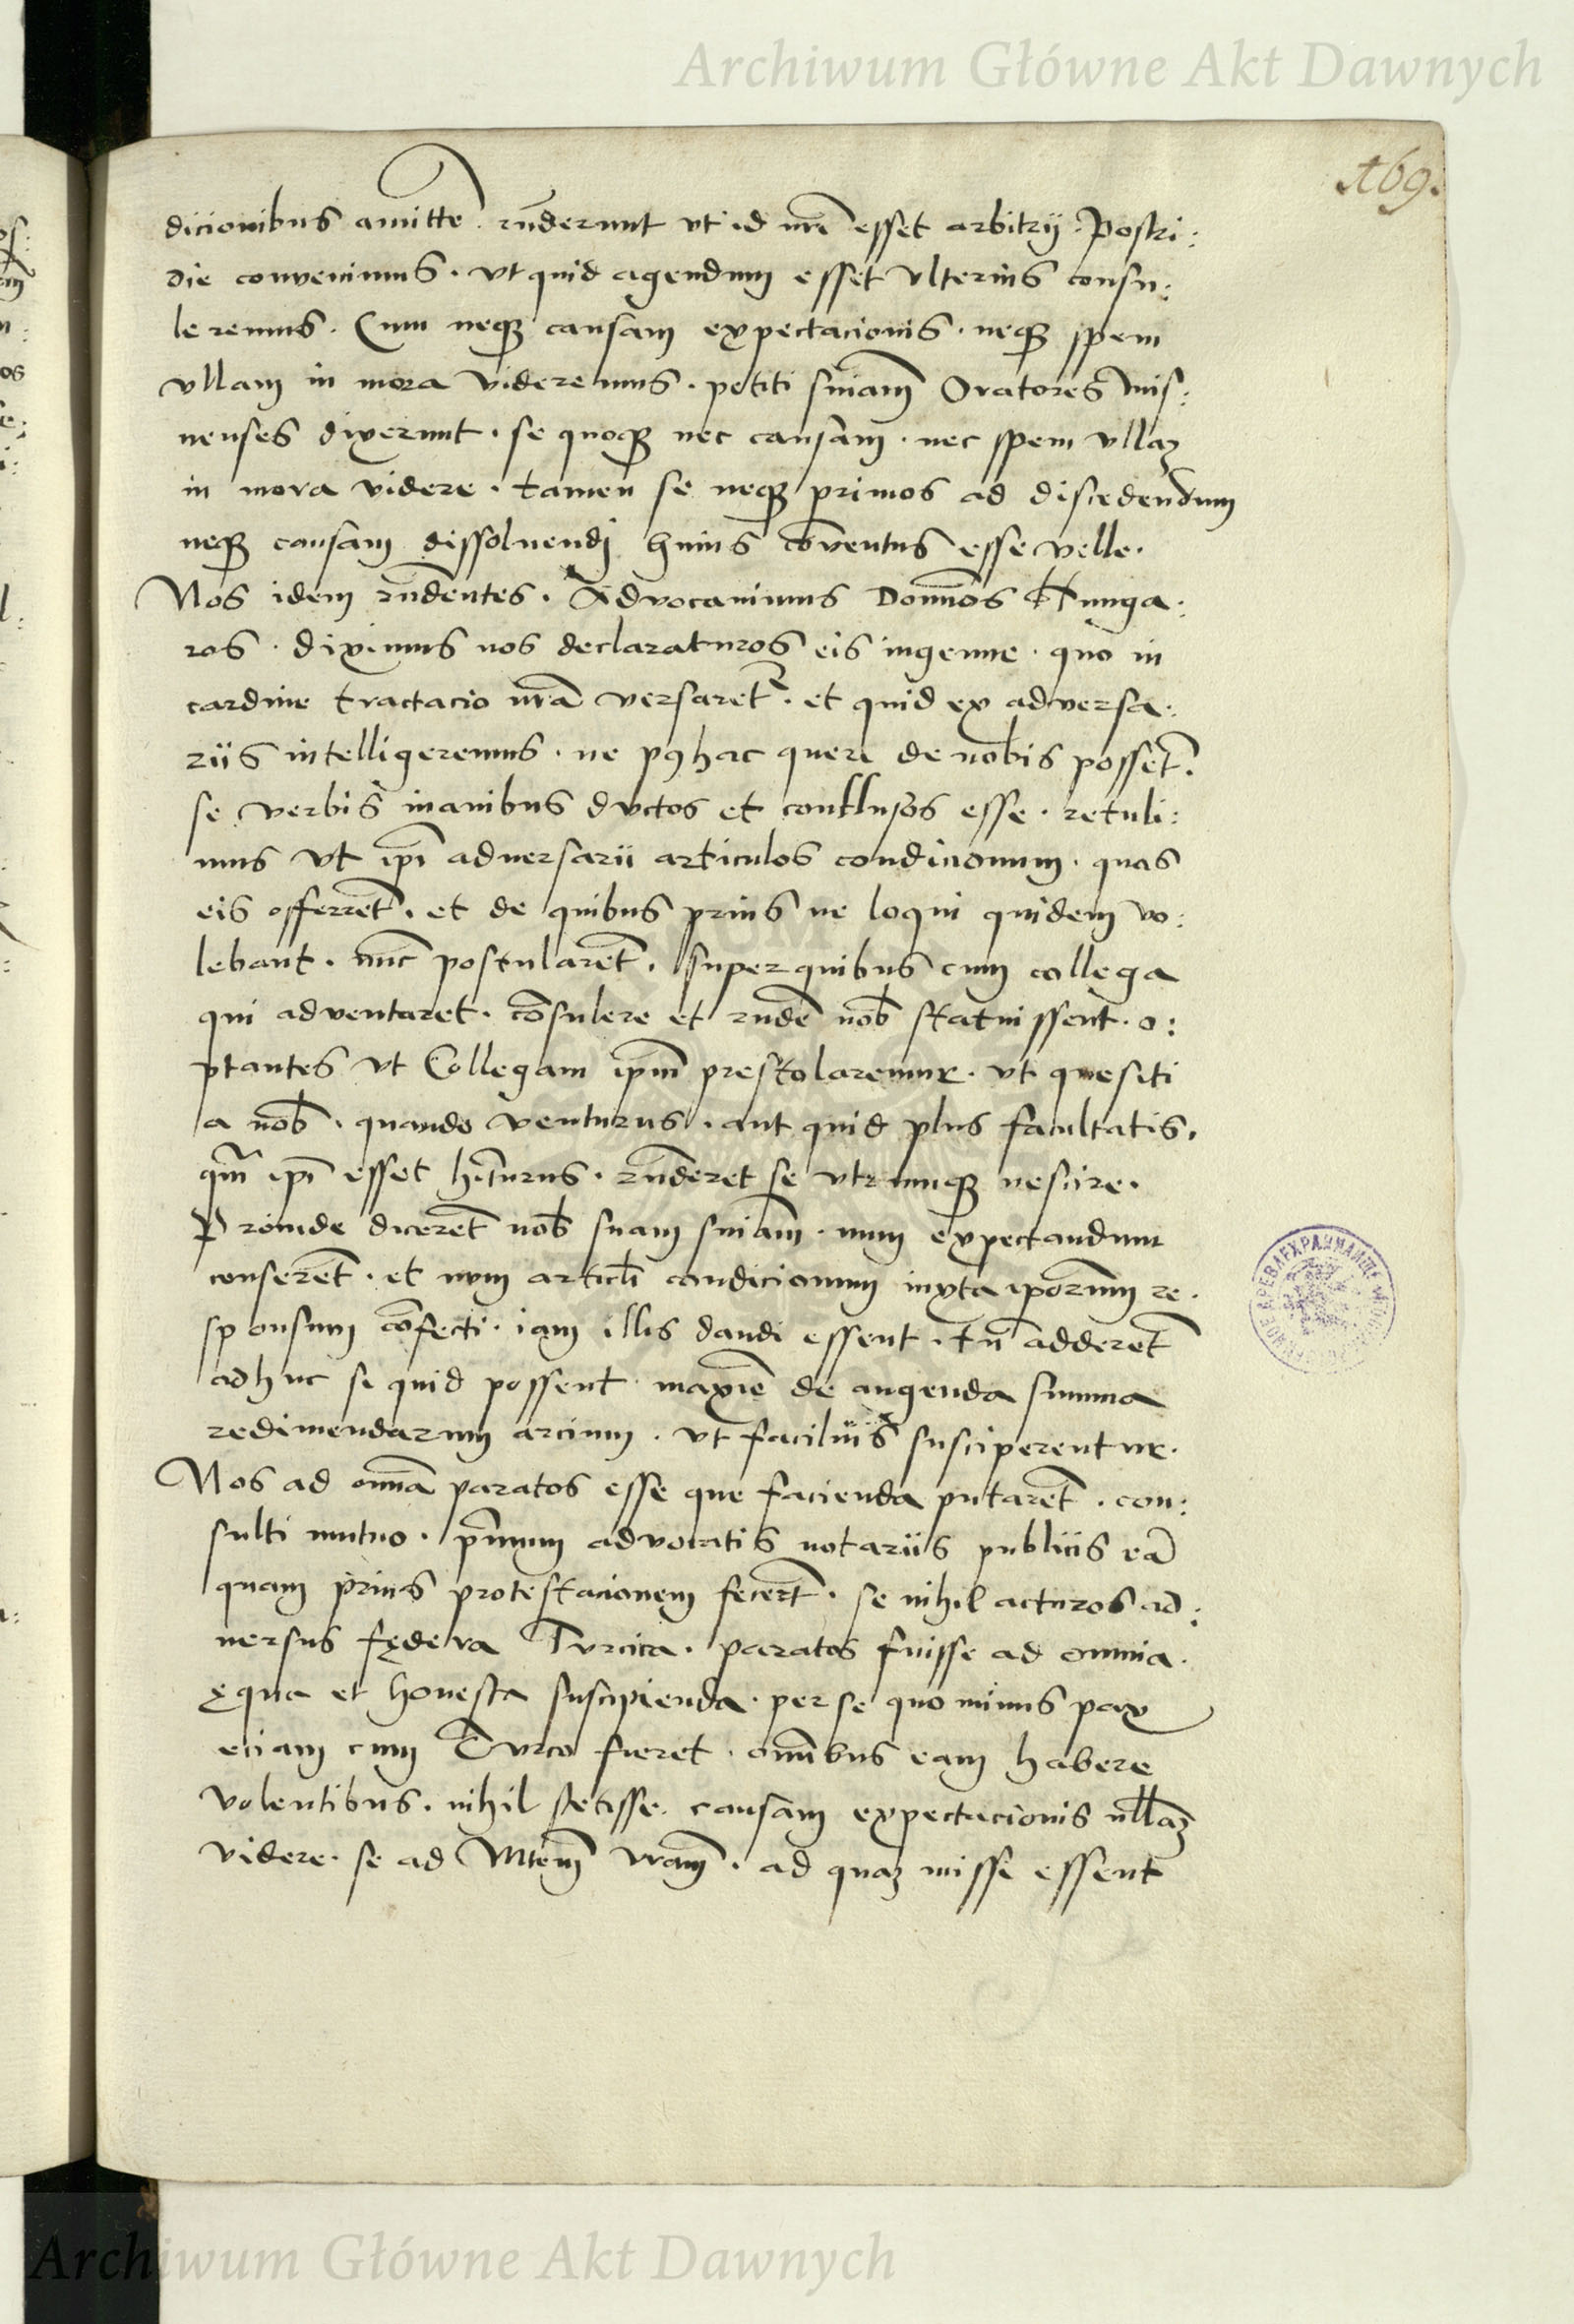 Archiwum Główne Akt Dawnych
169.
dicionibus amitte͂. rn̄derunt vt id nr̄i esset arbitrij. Postri:
die convenimus. vt quid agendum esset vlterius consu:
leremus. Cum neqȝ causam expectacionis. neqȝ spem
vllam in mora videremus. petiti sn̄iam Oratores mis:
nenses dixerunt. se quoqȝ nec causam. nec spem vllaȝ
in mora videre. tamen se neqȝ primos ad discedendum
neqȝ causam dissoluendj huius cōventus esse velle.
Nos idem rn̄dentes. Advocauimus Domn̄os Hunga:
ros. diximus nos declaraturos eis ingenue. quo in
cardine tractacio nr̄a versaret᷑. et quid ex adversa:
riis intelligeremus. ne pꝰhac queri de nobis possēt.
se verbis inanibus dvctos et conclusos esse. retuli:
mus vt ip̄i adversarii articulos condicionum. quas
eis offerrēt. et de quibus prius ne loqui quidem vo:
lebant. nūc postularēt. super quibus cum collega
qui adventaret. cōsulere et rn̄dē nob̄ statuissent. o:
ptantes vt Collegam ip̄m prestolaremur. vt quesiti
a nob̄. quando venturus. aut quid plus facultatis.
qm̄ ip̄i esset hīturus. rn̄deret se vtrumqȝ nescire.
Proinde dicerēt nob̄ suam sn̄iam. num expectandum
conserēt. et num articl̄i condicionum iuxta ip̄orum re.
sponsum cōfecti. iam illis dandi essent. tn̄ adderēt
adhuc si quid possent. maxīe de augenda summa
redimendarum arcium. vt facilius susciperentur.
Nos ad om̄ia paratos esse que facienda putarēt. con:
sulti mutuo. pn̄mum advocatis notariis publicis eā
quam prius protestacionem fecerūt. se nihil acturos ad:
uersus fędera Turcica. paratos fuisse ad omnia.
ęqua et honesta suscipienda. per se quo minus pax
eciam cum Turco fieret. omn̄ibus eam habere
volentibus. nihil stetisse. causam expectacionis nl̄laȝ
videre. se ad Mtem̄ vram̄. ad quaȝ missi essent
Archiwum Główne Akt Dawnych